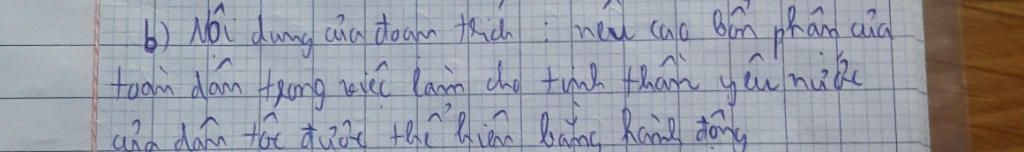 b) Nội dung của đoạn trích : nêu cao bổn phận của
toàn dân trong việc làm cho tinh thần yêu nước
của dân tộc được thể hiện bằng hành động